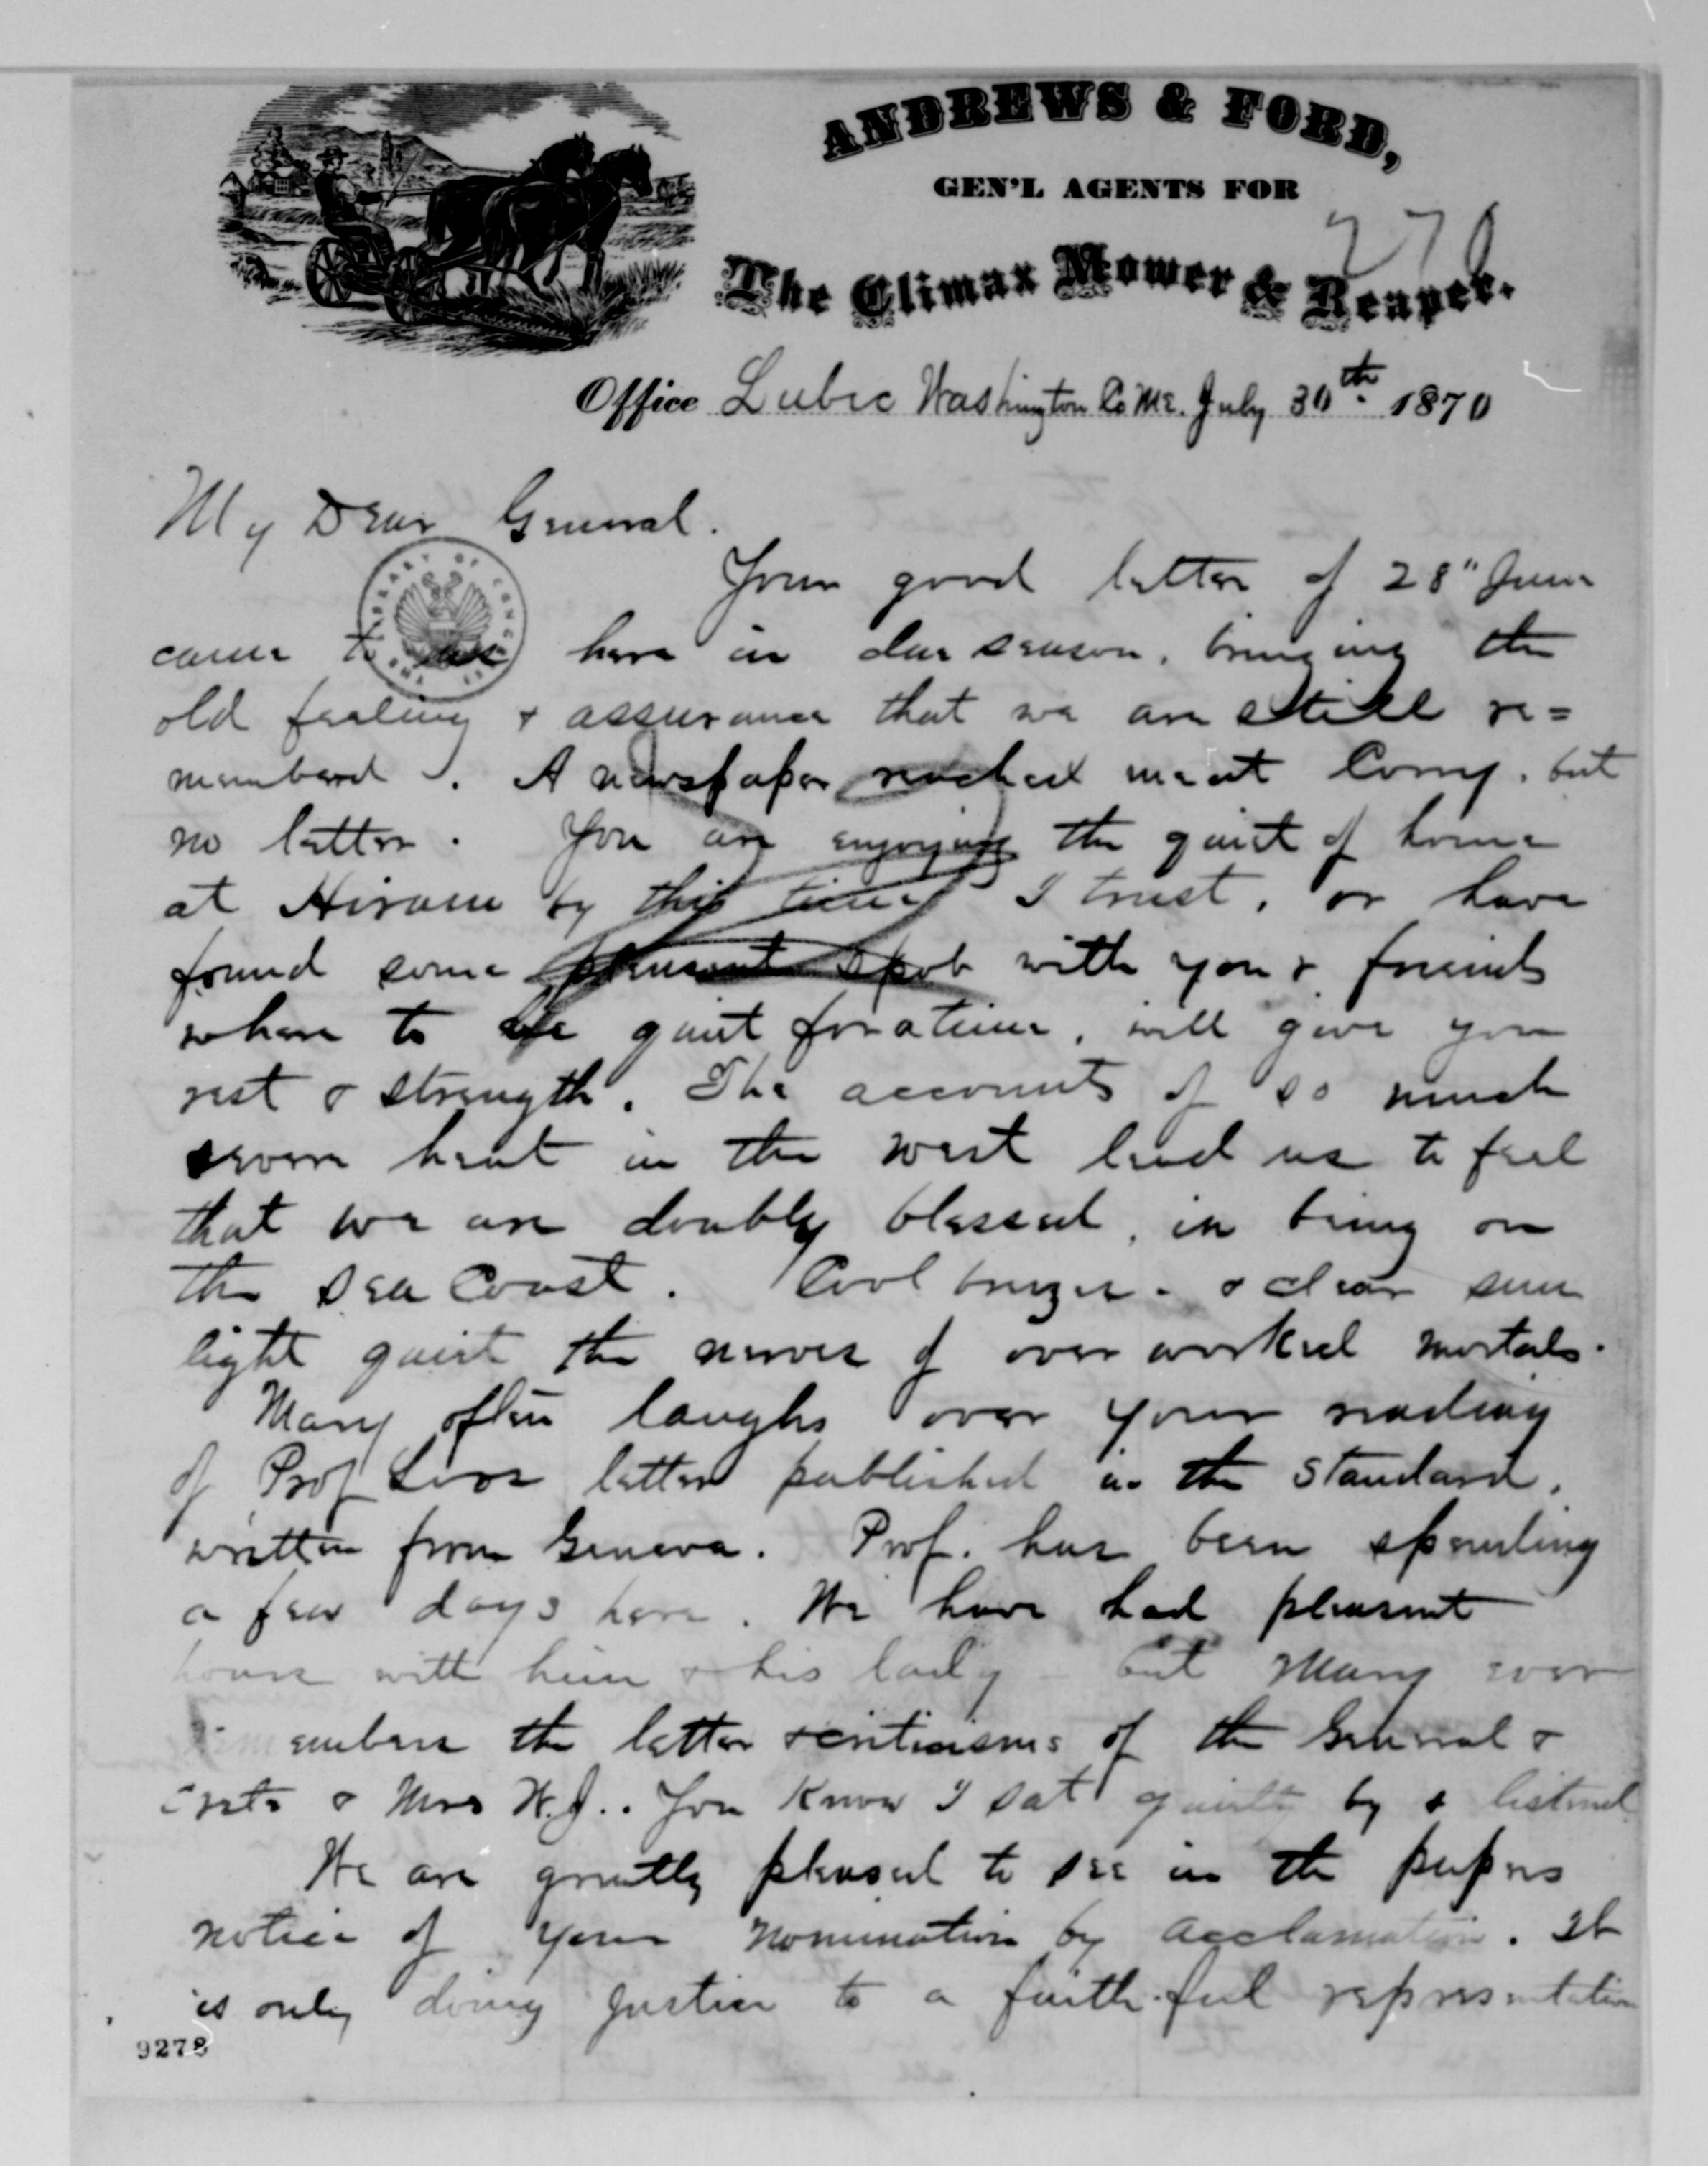 ANDREWS & FORD,
GEN'L AGENTS FOR
The Climax Mower & Reaper.
270
Office Lubec Washington Co Me. July 30th 1870
My Dear General.
Your good letter of 28" June
came to us here in due season, bringing the
old feeling & assurance that we are still re=
membered. A newspaper reached me at Corry. but
no letter. You are enjoying the quiet of home
at Hiram by this time I trust, or have
found some pleasant spot with you & friends
where to be quiet for a time, will give you
rest & strength. The accounts of so much
severe heat in the west lead us to feel
that we are doubly blessed, in being on
the Sea Coast. Cool breezes - & clear sun
light quiet the nerves of over worked mortals.
Mary often laughs over your reading
of Prof Loos letter published in the Standard,
written from Geneva. Prof. has been spending
a few days here. We have had pleasant
hours with him & his lady - but Mary ever
remembers the letter & criticisms of the General &
& Mrs W.J.. You know I sat quietly by & listened
We are greatly pleased to see in the papers
notice of your nomination by acclamation. It
is only doing justice to a faithful representative
9278
LIBRARY OF CONGRESS